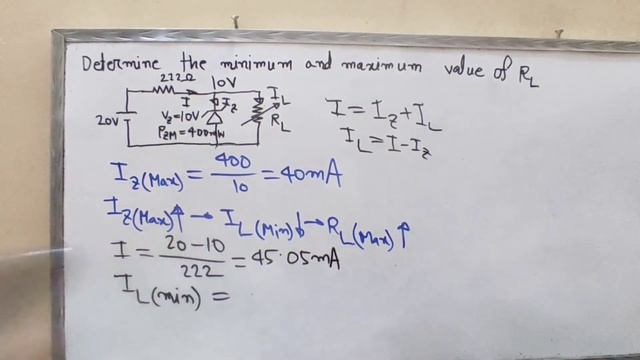 Determine the minimum and maximum value of R_L
222Ω
10V
I
I_Z
I_L
20V
V_Z=10V
P_ZM=400mW
R_L
I = I_Z + I_L
I_L = I - I_Z
I_Z(Max) = 400/10 = 40mA
I_Z(Max)↑ → I_L(Min)↓ → R_L(Max)↑
I = 20-10/222 = 45.05mA
I_L(min) =